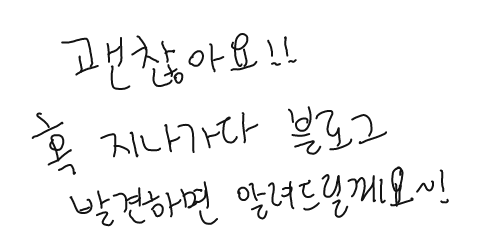 괜찮아요!!
혹 지나가다 블로그
발견하면 알려드릴게요~!